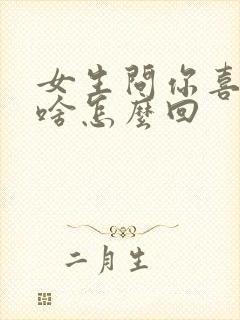 女生問你喜
啥怎麼回
二月生